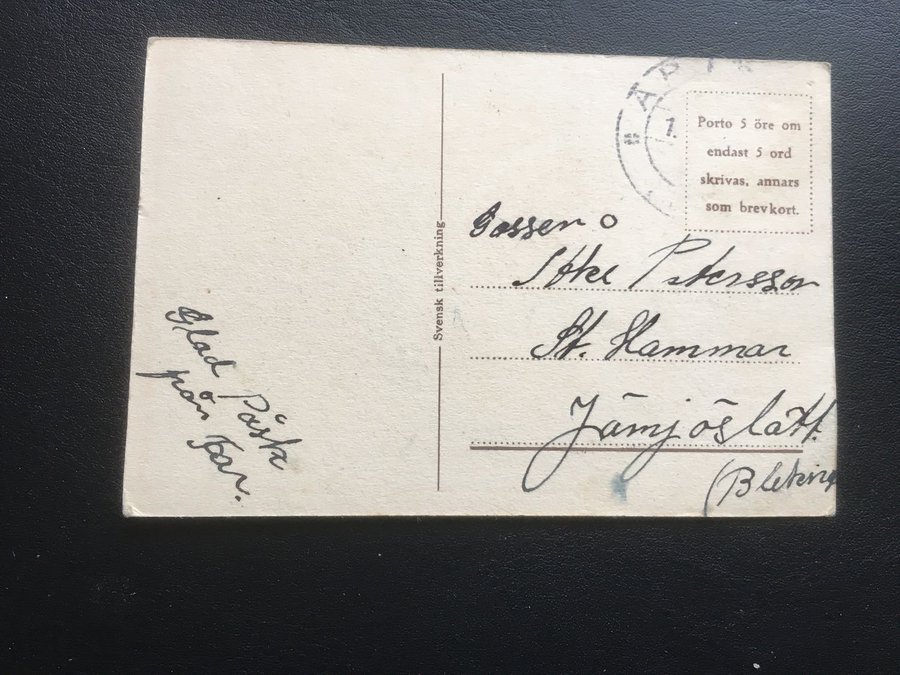 Glad Påsk
från Far.
Svensk tillverkning
Porto 5 öre om
endast 5 ord
skrivas, annars
som brevkort.
Gossen
Petersson
St. Hammar
Jämjöslätt.